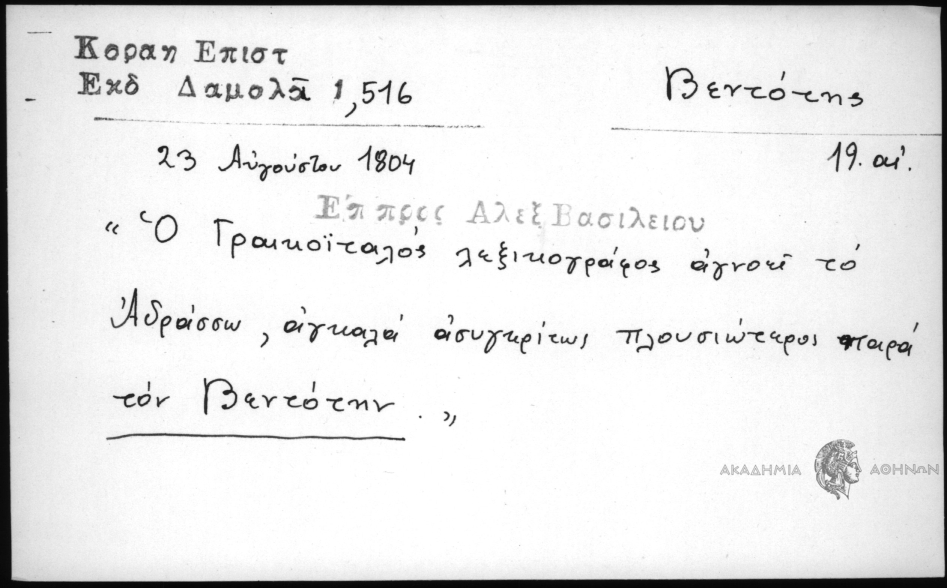 Κοραη Επιστ
Εκδ Δαμολᾶ 1,516
Βεντότης
23 Αὐγούστου 1804
19. αἰ.
Επ προς Αλεξ Βασιλειου
“ Ὁ Γραικοϊταλός λεξικογράφος ἀγνοεῖ τό
Ἀδράσσω, ἀγκαλά ἀσυγκρίτως πλουσιώτερος παρά
τόν Βεντότην. „
ΑΚΑΔΗΜΙΑ ΑΘΗΝΩΝ